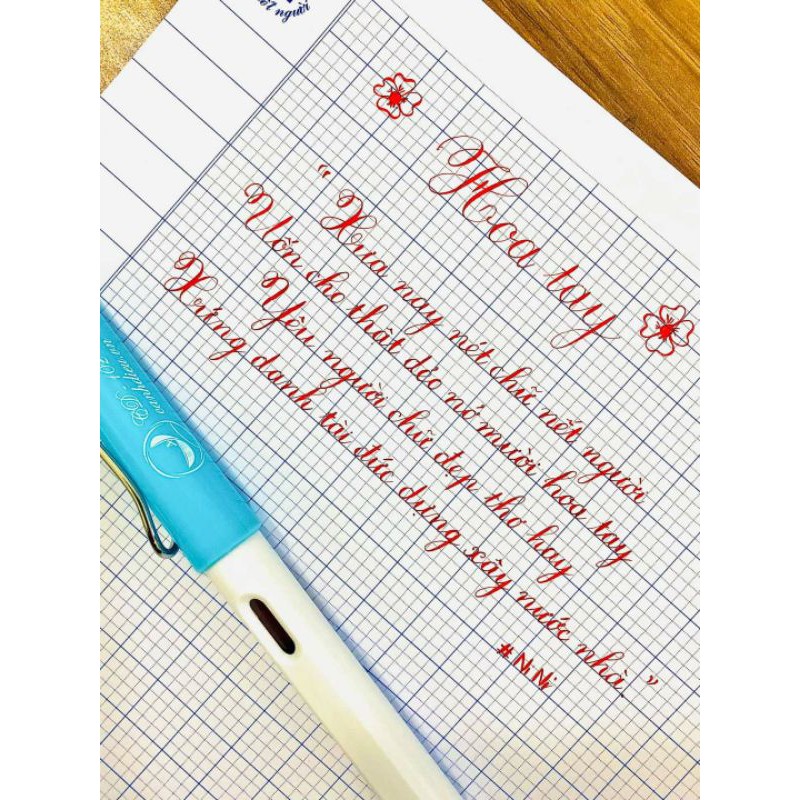 nét người
Hoa tay
"Xưa nay nét chữ nết người
Uốn cho thật dẻo nở mười hoa tay
Yêu người chữ đẹp thơ hay
Xứng danh tài đức dựng xây nước nhà."
#NiNi
oanhdieu.vn